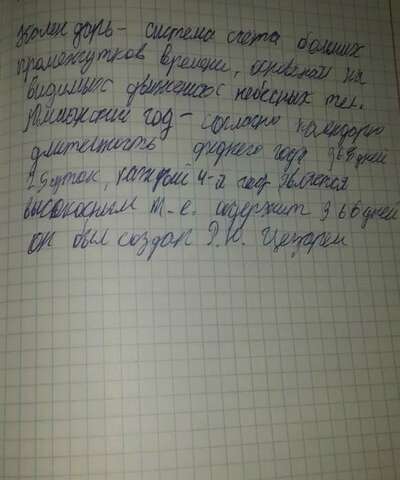 Колен дарь - система счета больших
промежутков времени, основаной на
видимых движениях небесных тел.
Юлианский год - согласно календарю
длительность среднего года 365 дней
25 суток, каждый 4-й год является
високосным т.е. содержит 366 дней
он был создан Г. Ю. Цезарем